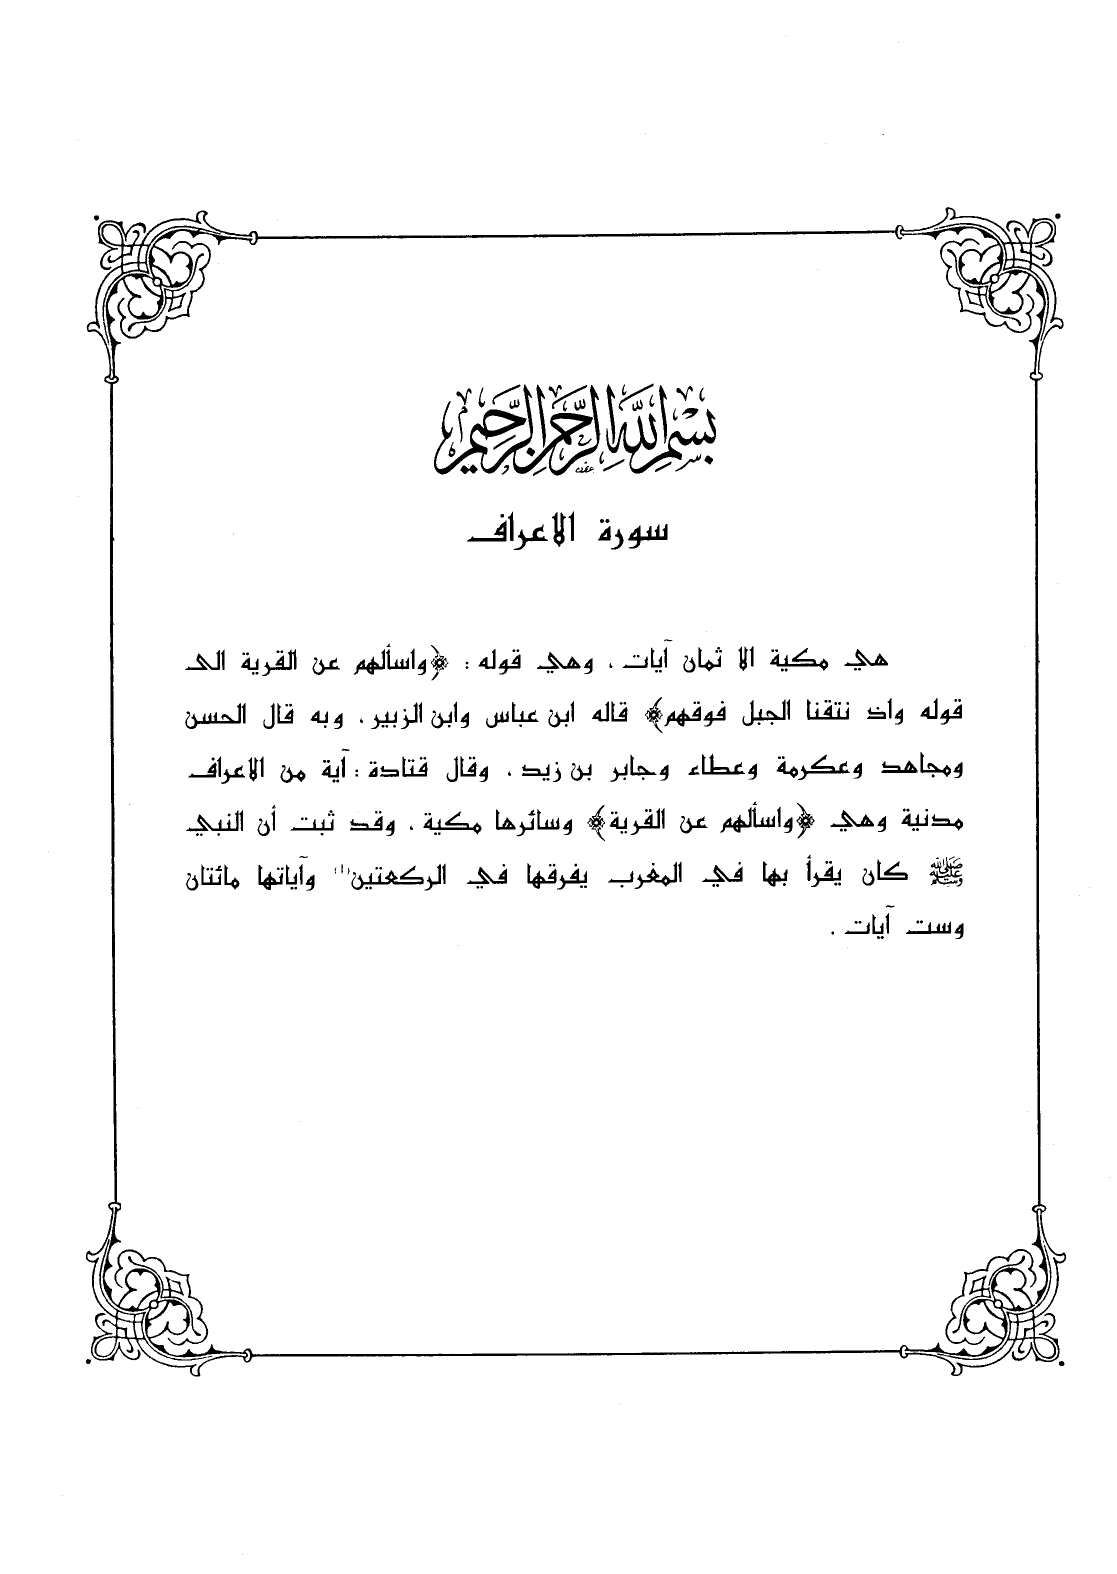 بِسْمِ اللَّهِ الرَّحْمَنِ الرَّحِيمِ
سورة الاعراف
هي مكية الا ثمان آيات ، وهي قوله : ﴿واسألهم عن القرية الى
قوله واذ نتقنا الجبل فوقهم﴾ قاله ابن عباس وابن الزبير ، وبه قال الحسن
ومجاهد وعكرمة وعطاء وجابر بن زيد ، وقال قتادة : آية من الاعراف
مدنية وهي ﴿واسألهم عن القرية﴾ وسائرها مكية ، وقد ثبت أن النبي
ﷺ كان يقرأ بها في المغرب يفرقها في الركعتين (١) وآياتها مائتان
وست آيات .